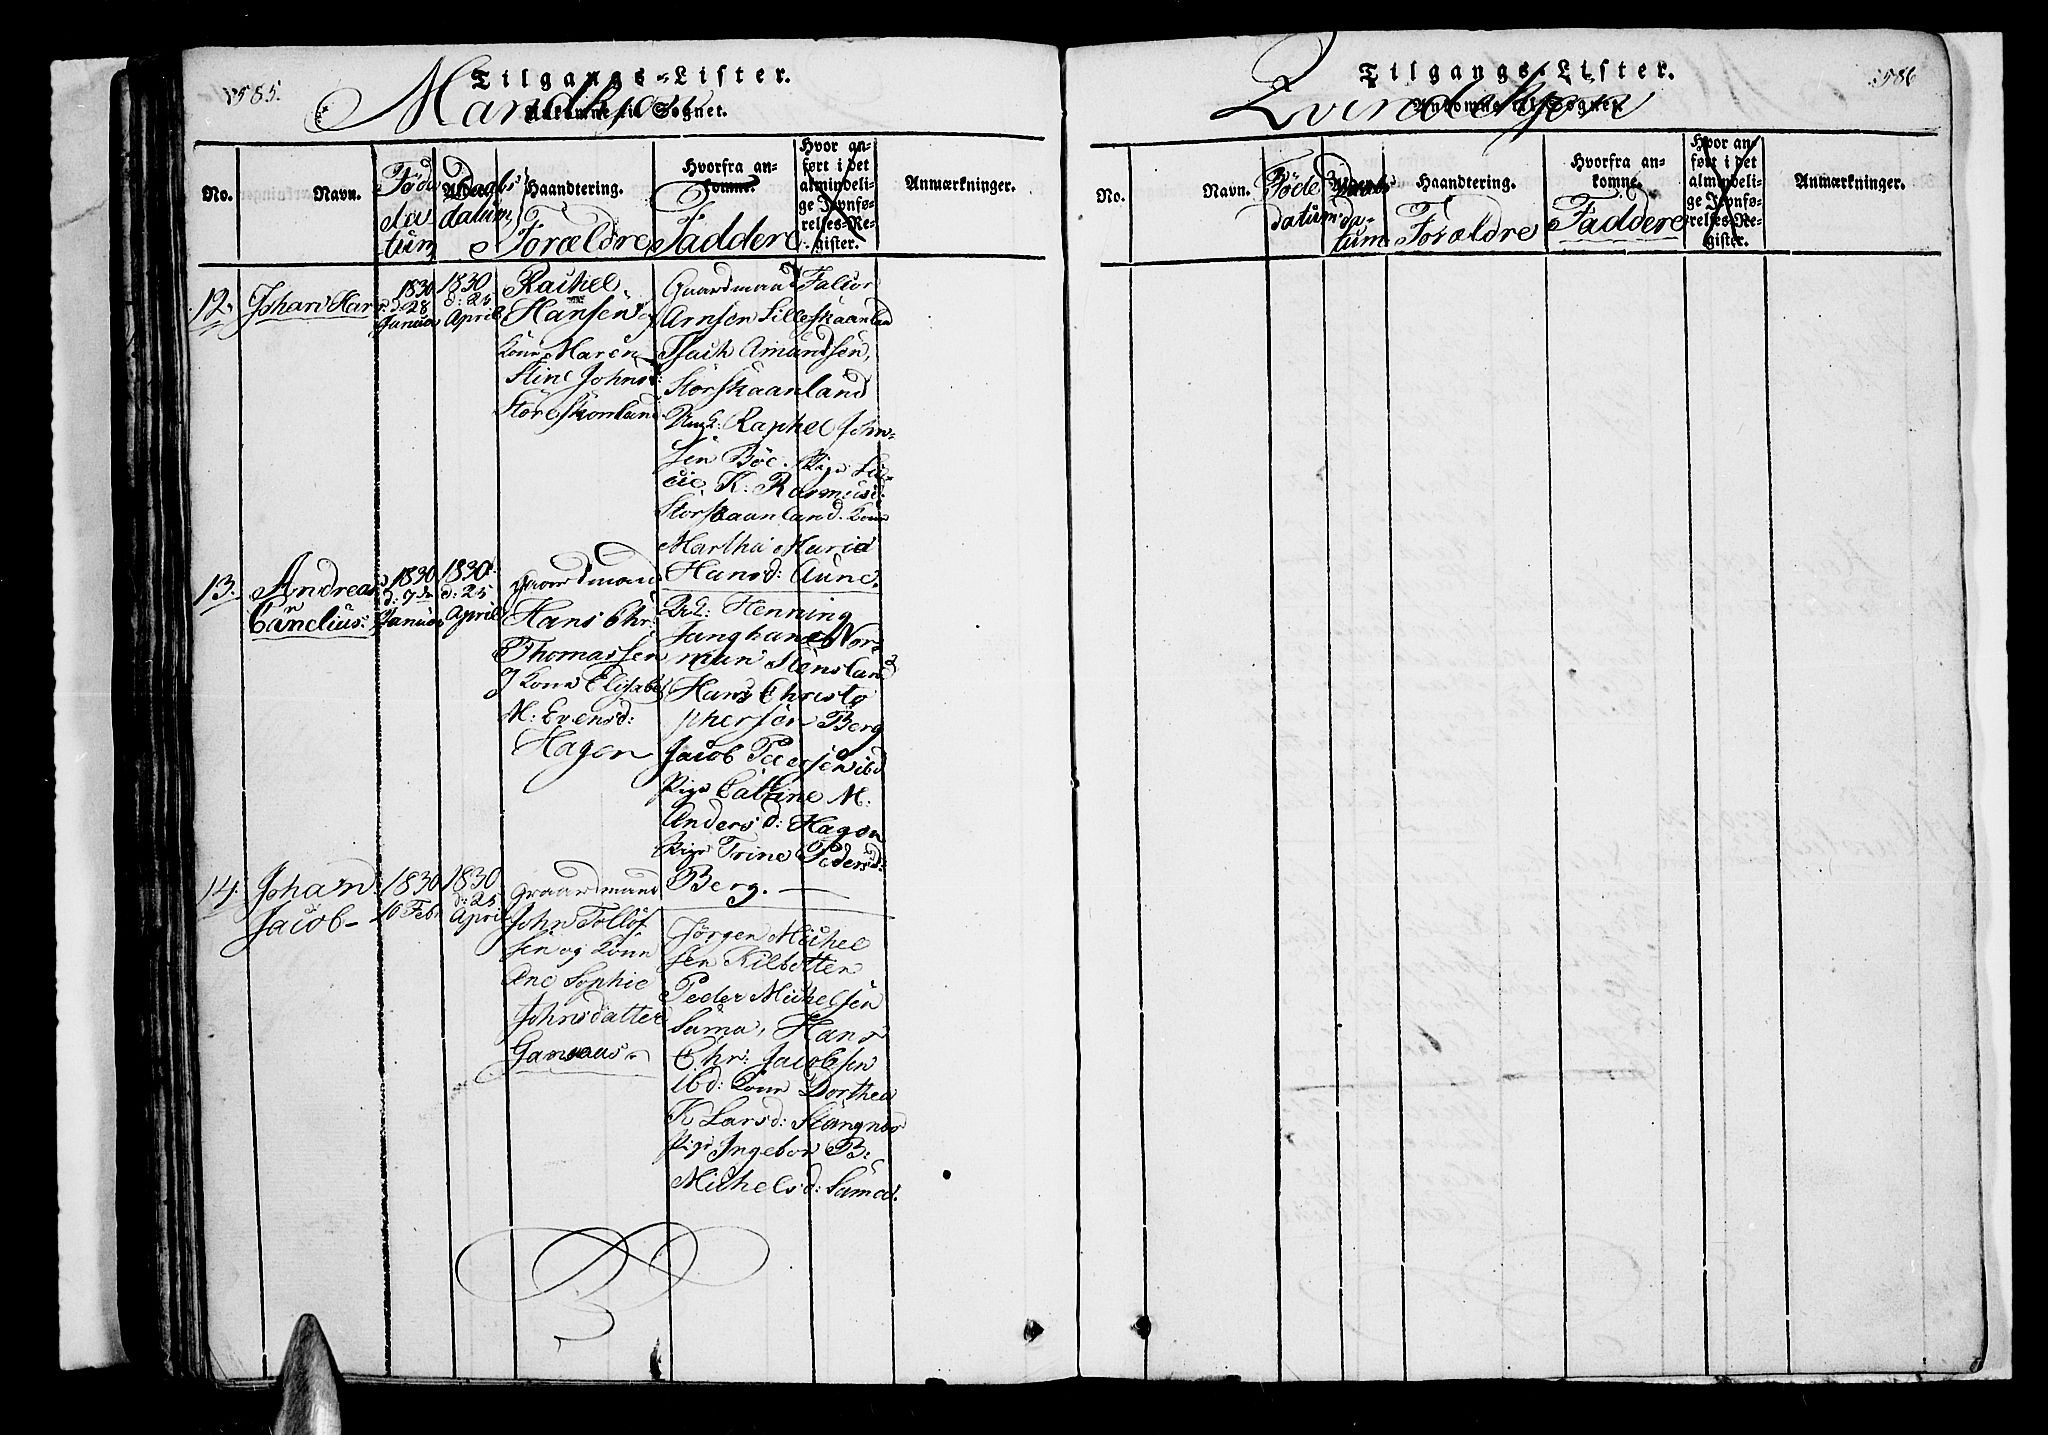 585.
Tilgangs-Lister.
Ankomne til Sognet.
Mandkjön
No.
Navn.
Föde
datum
Daabs
datum
Haandtering.
Forældre
Hvorfra ankomne.
Faddere
Hvor an-
ført i det
almindeli-
ge Jevnfø-
relses-Re-
gister.
Anmærkninger.
12.
Johan Har
1830
d. 28
Januar
1830
d: 25
April
Rachel
Hansen og
Kone Maren
Stine Johnsd:
Store Skonland
Gaardmand
Arnsen Lilleskaanland
Isach Amundsen,
Storskaanland
Ungk: Raphel John-
sen Böe. Pige
K: Rasmusd:
Storskaanland. Kone
Martha Maria
Hansd: Aune.
13.
Andreas
Cornelius.
1830
d: 7de
Januar
1830
d: 25
April
Gaardmand
Hans Chr:
Thomassen
og Kone Elisabet
M: Evensd:
Hagen
Henning
Junghans Nor-
man Stensland
Hans Christo
phersen Berg
Jacob Pedersen ibd
Pige Cathrine M.
Andersd: Hagen
Pige Trine Pedersd:
Berg.
14.
Johan
Jacob
1830
16 Febr
1830
d: 25
April
Graardmand
John Tollöf-
sen og Kone
Ane Sophie
Johnsdatter
Ganaas
Jörgen Michel
sen Kilbotten
Peder Michelsen
Sama, Hans
Chr: Jacobsen
ibd: Kone Dorthea
K Larsd: Stangnes
Pige Ingebor B:
Michelsd: Sama.
586
Tilgangs-Lister.
Ankomne til Sognet.
Qvindekjön
No.
Navn.
Föde
datum
Daabs
da-
tum
Haandtering.
Forældre
Hvorfra an-
komne.
Faddere
Hvor an-
ført i det
almindeli-
ge Jevnfø-
relses-Re-
gister.
Anmærkninger.